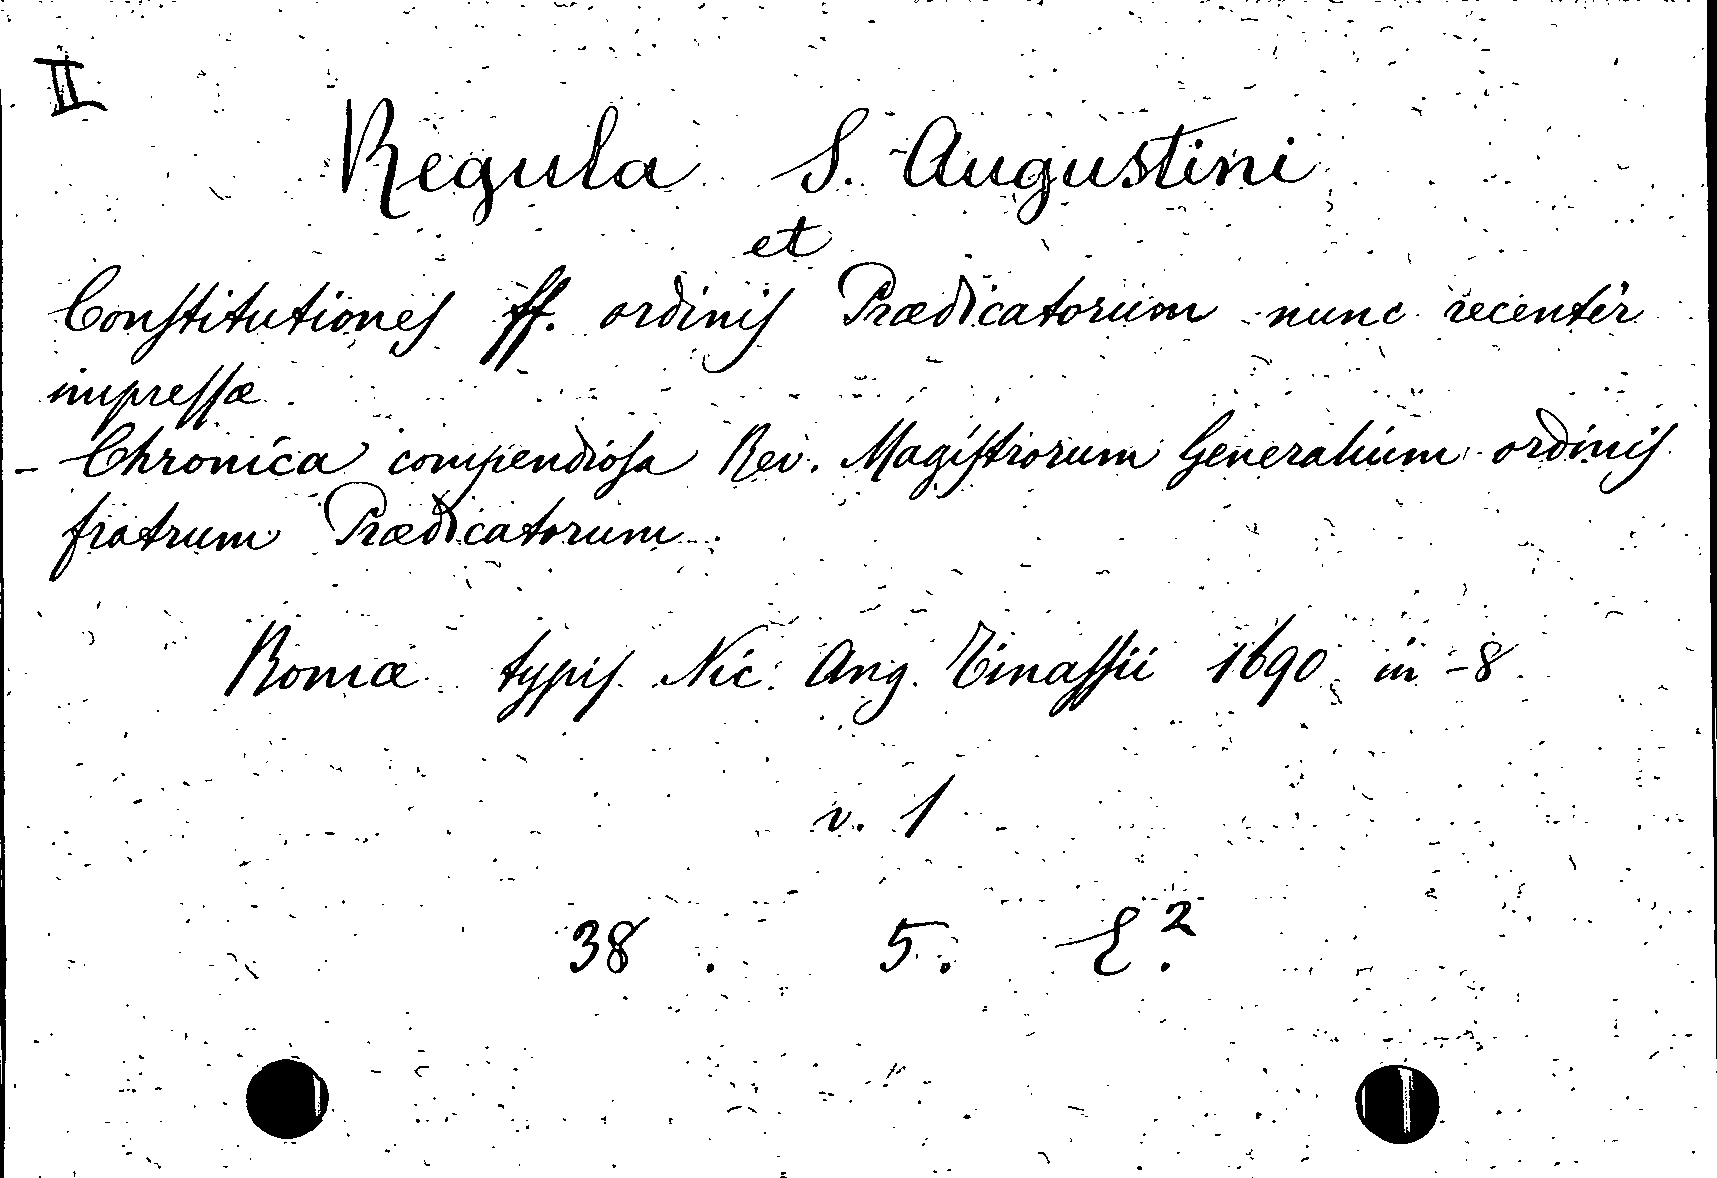 II
Regula S. Augustini
et
Conſtitutioneſ ff. ordiniſ Prædicatorum nunc recentér
impreſſæ
- Chronica compendioſa Rev. Magiſtrorum Generalium ordiniſ
fratrum Prædicatorum
Romæ typiſ Nic. Ang. Tinaſſii 1690 in -8.
v. 1
38 . 5. E².